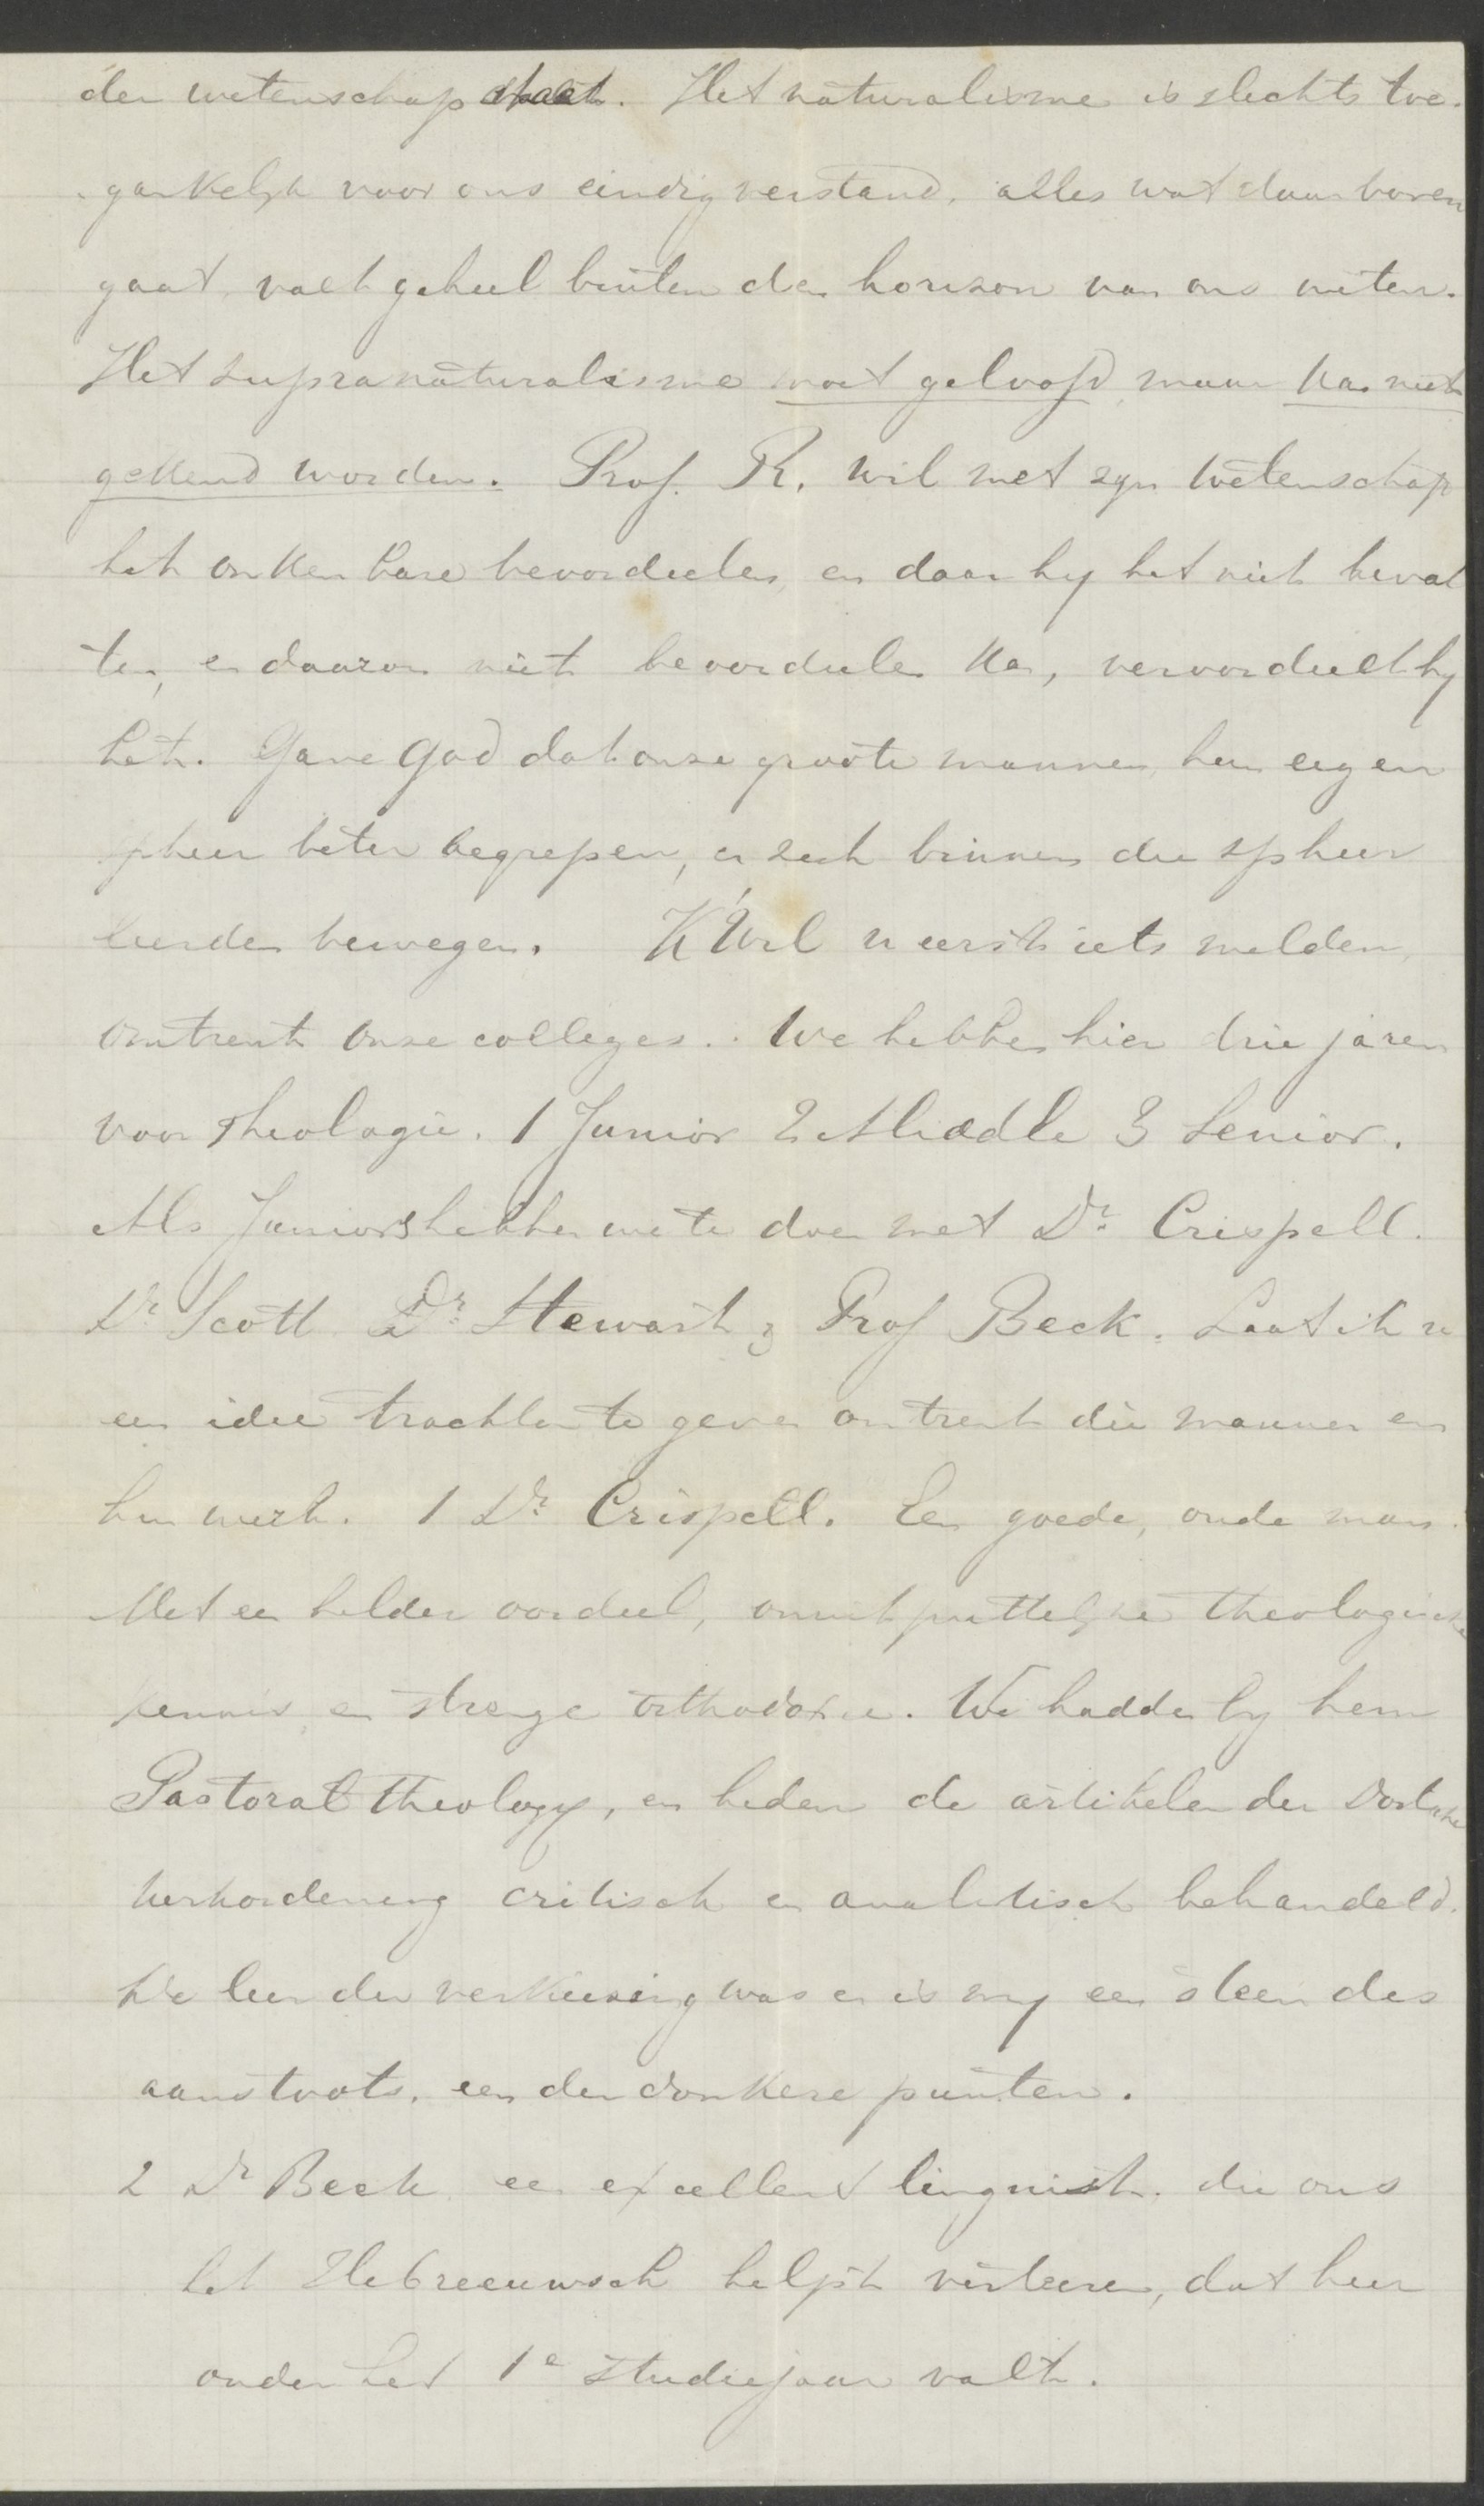 der wetenschap staat. Het naturalisme is slechts toe-
gankelijk voor ons eindig verstand, alles wat daar boven
gaat, valt geheel buiten den horizon van ons weten.
Het supranaturalisme moet geloofd, maar kan niet
gekend worden. Prof. R. wil met zyn wetenschap
het onkenbare beoordeelen, en daar hy het niet beval
ten, en daarom niet beoordeelen kan, veroordeelt hy
het. Gave God dat onze groote mannen hun eigen
spheer beter begrepen, en zich binnen die spheer
leerden bewegen. K'Wil u eerst iets melden
omtrent onze colleges. We hebben hier drie jaren
voor Theologie. 1 Junior 2 Middle 3 Senior.
Als Juniors hebben we te doen met Dr. Crispell.
Dr Scott Dr. Stewart & Prof Beck. Laat ik u
een idee trachten te geven omtrent die mannen en
hun werk. 1 Dr. Crispell. Een goede, oude man.
Met een helder oordeel, onuitputtelyke theologische
kennis, en strenge orthodoxie. We hadden by hem
Pastoral Theology, en heden de artikelen der Dortsche
kerkordening critisch en analitisch behandeld.
De leer der verkiezing was en is my een steen des
aanstoots, een der donkere punten.
2 Dr Beck een excellent linguist, die ons
het Hebreeuwsch helpt vertieren, dat hier
onder het 1e studiejaar valt.